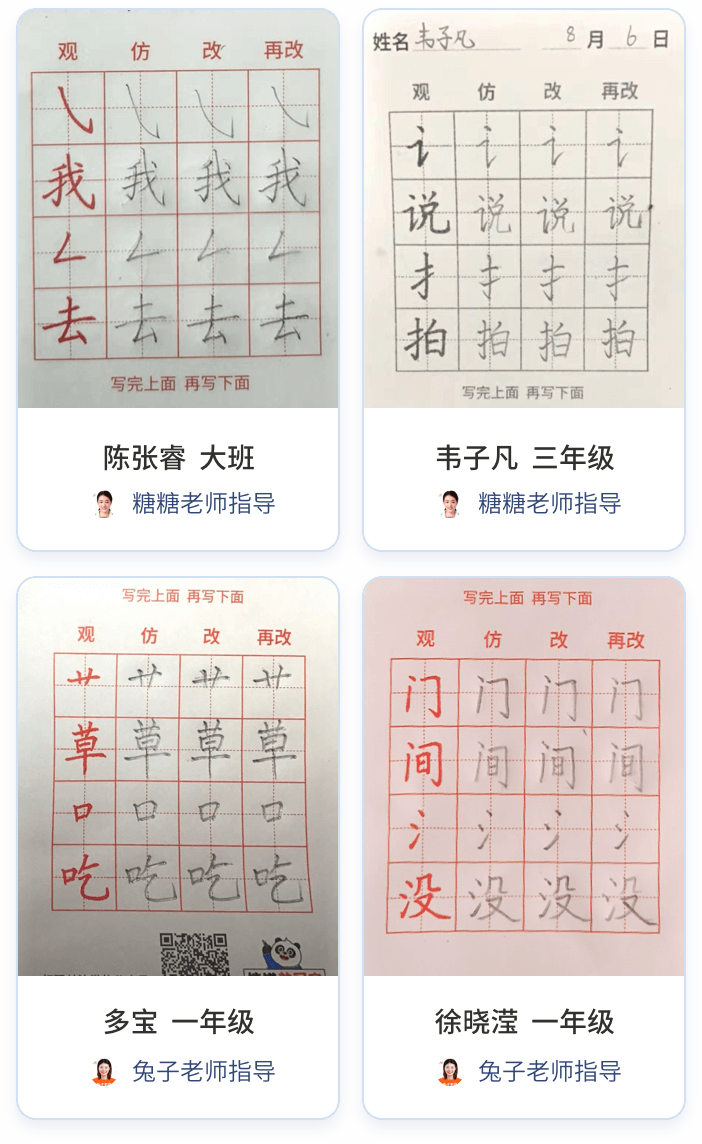 观 仿 改 再改
㇂ ㇂ ㇂ ㇂
我 我 我 我
𠃋 𠃋 𠃋 𠃋
去 去 去 去
写完上面 再写下面
陈张睿 大班
糖糖老师指导
姓名 韦子凡 8 月 6 日
观 仿 改 再改
讠 讠 讠 讠
说 说 说 说
扌 扌 扌 扌
拍 拍 拍 拍
写完上面 再写下面
韦子凡 三年级
糖糖老师指导
写完上面 再写下面
观 仿 改 再改
艹 艹 艹 艹
草 草 草 草
口 口 口 口
吃 吃 吃 吃
多宝 一年级
兔子老师指导
写完上面 再写下面
观 仿 改 再改
门 门 门 门
间 间 间 间
氵 氵 氵 氵
没 没 没 没
徐晓滢 一年级
兔子老师指导